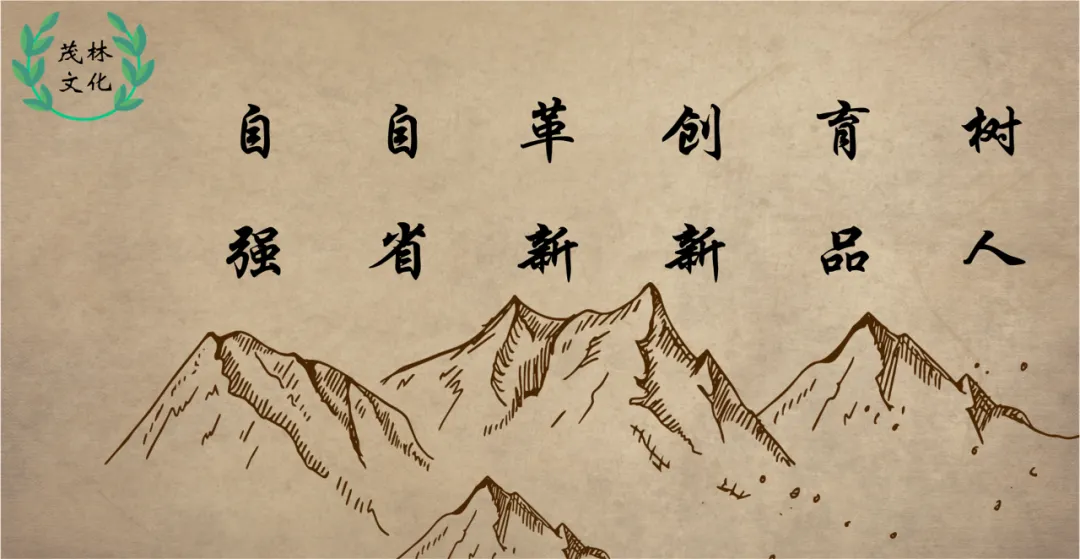 茂林
文化
树人
育品
创新
革新
自省
自强